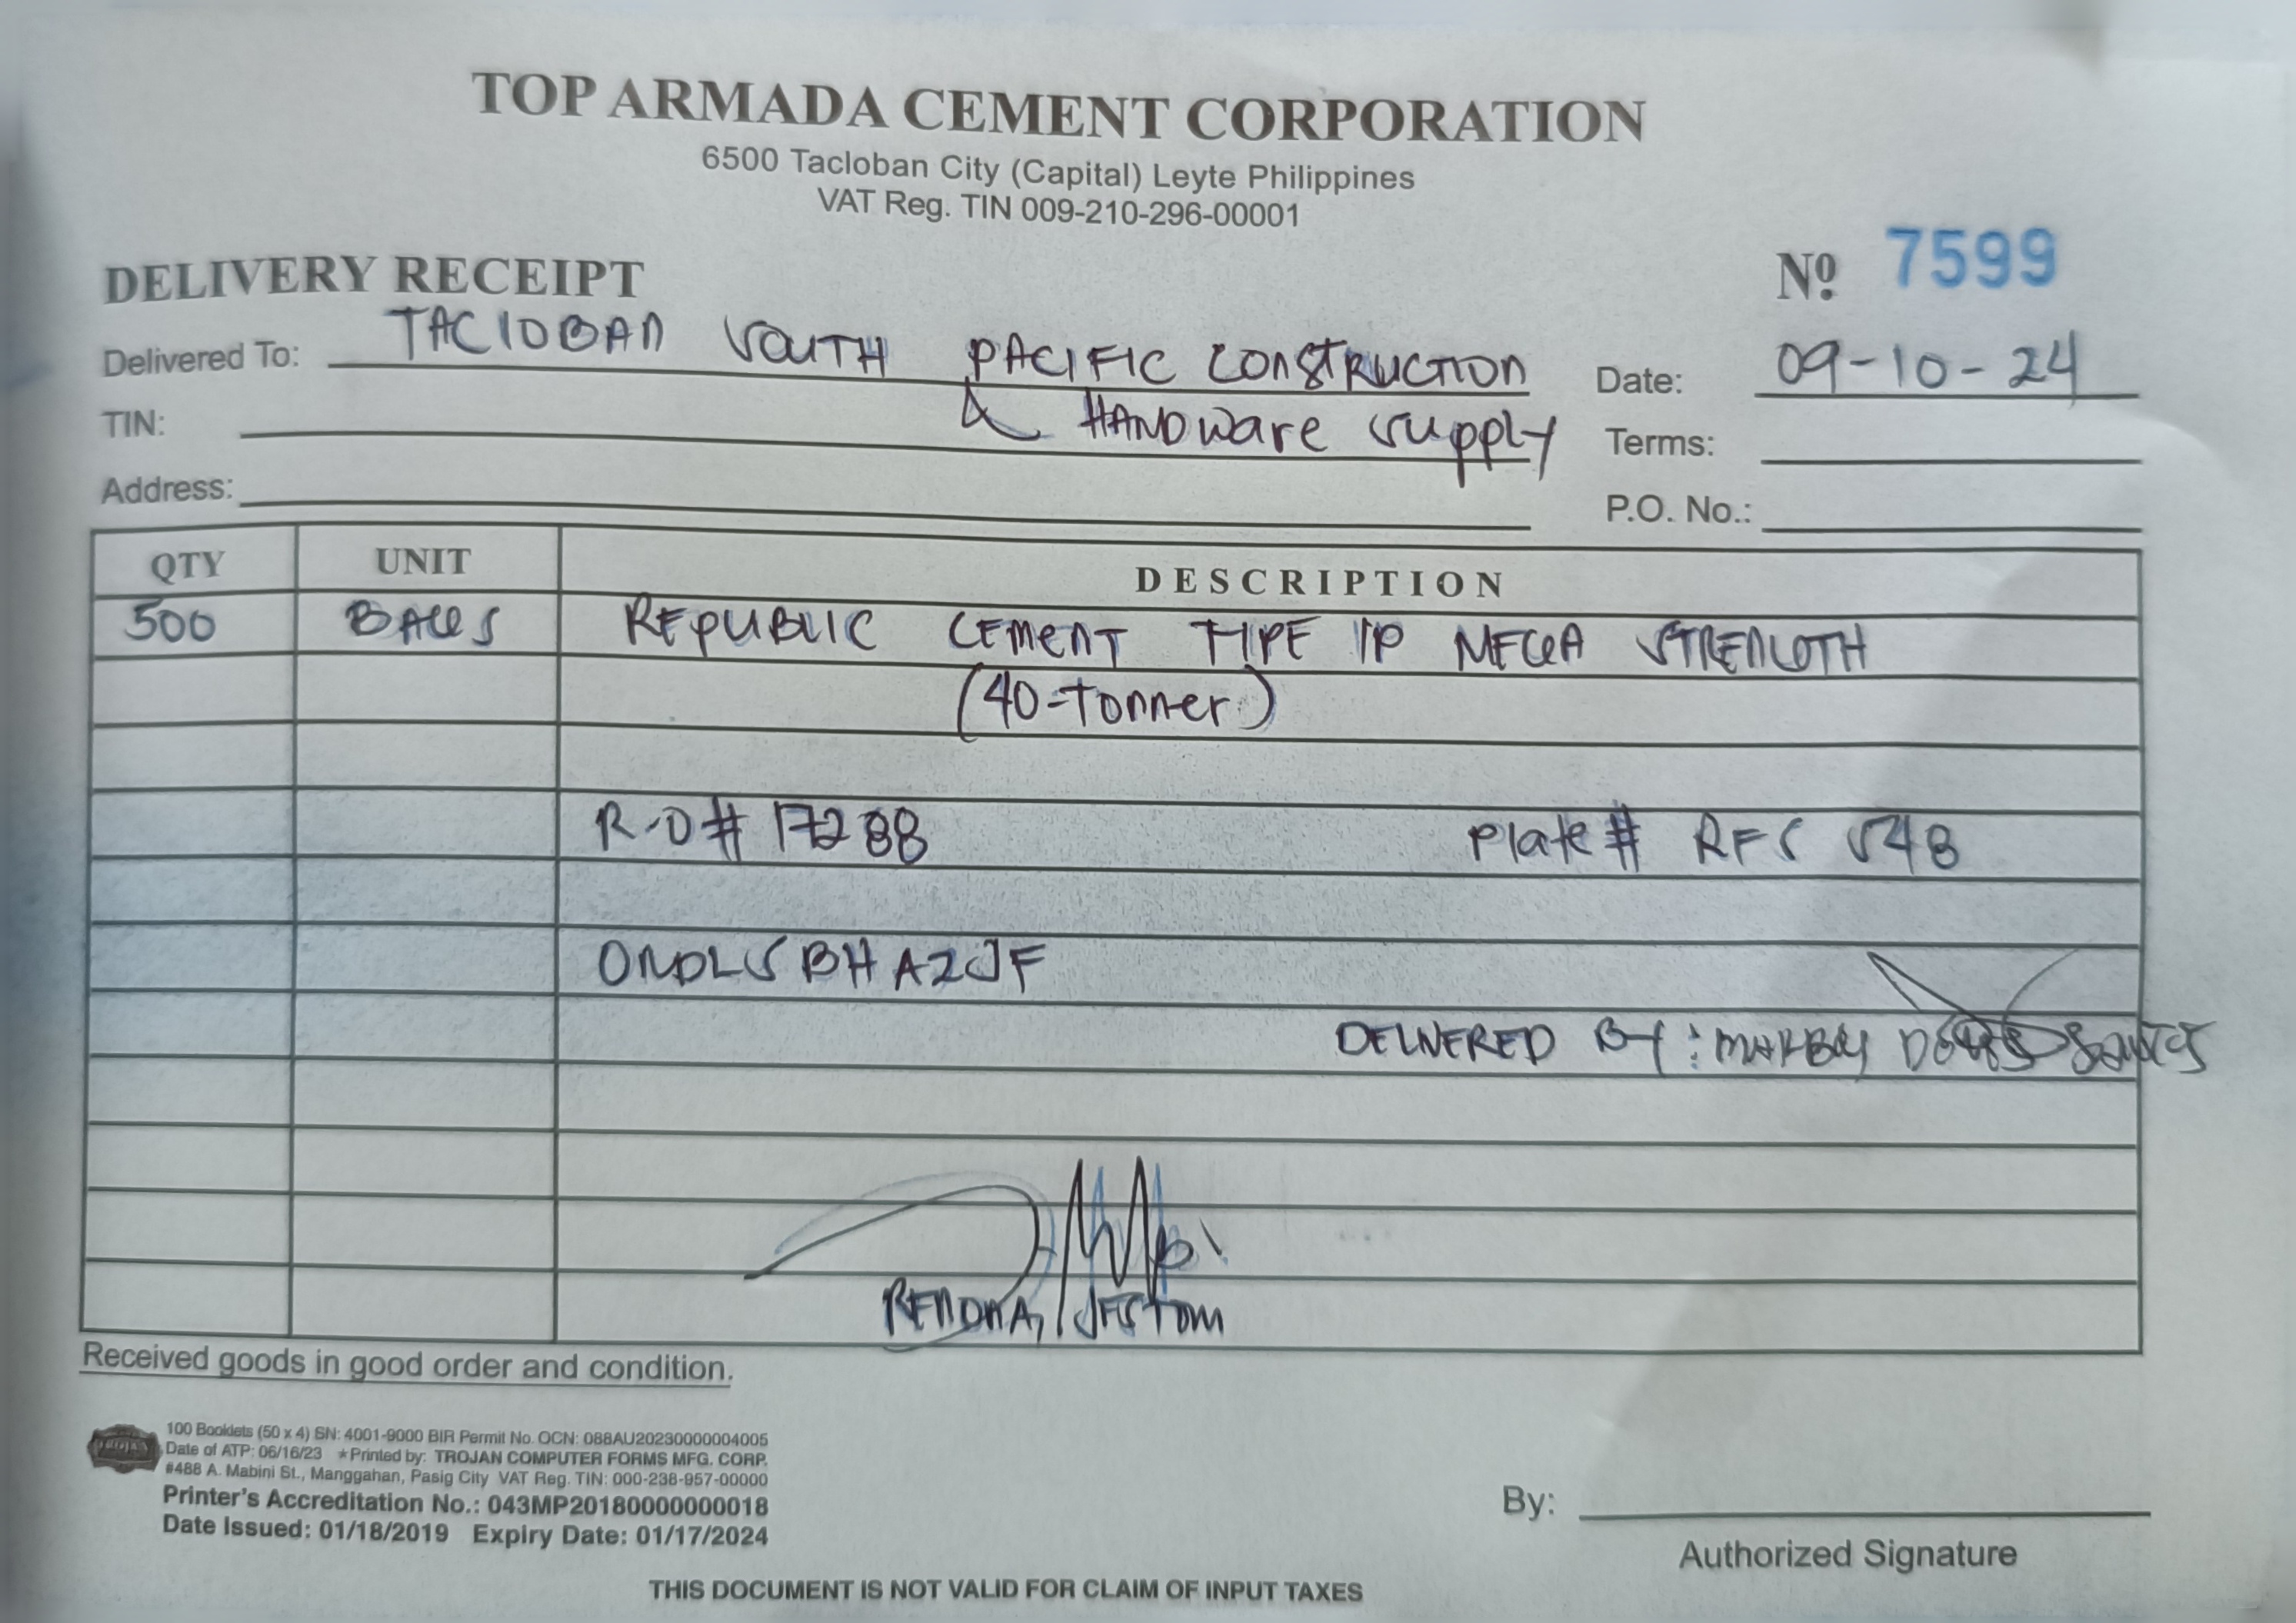 TOP ARMADA CEMENT CORPORATION
6500 Tacloban City (Capital) Leyte Philippines
VAT Reg. TIN 009-210-296-00001
DELIVERY RECEIPT
Nº 7599
Delivered To: TACLOBAN SOUTH PACIFIC CONSTRUCTION
Date: 09-10-24
& HARDware supply
TIN:
Terms:
Address:
P.O. No.:
QTY UNIT DESCRIPTION
500 BAGS REPUBLIC CEMENT TYPE 1P MEGA STRENGTH
(40-Tonner)
R.O# 17288 Plate# RFS 548
ONDLSBHAZJF
DELIVERED BY: Santos
RENDHA, JESTOM
Received goods in good order and condition.
100 Booklets (50 x 4) SN: 4001-9000 BIR Permit No. OCN: 088AU20230000004005
Date of ATP: 06/16/23 ★Printed by: TROJAN COMPUTER FORMS MFG. CORP.
#488 A. Mabini St., Manggahan, Pasig City VAT Reg. TIN: 000-238-957-00000
Printer's Accreditation No.: 043MP20180000000018
Date Issued: 01/18/2019 Expiry Date: 01/17/2024
By:
Authorized Signature
THIS DOCUMENT IS NOT VALID FOR CLAIM OF INPUT TAXES